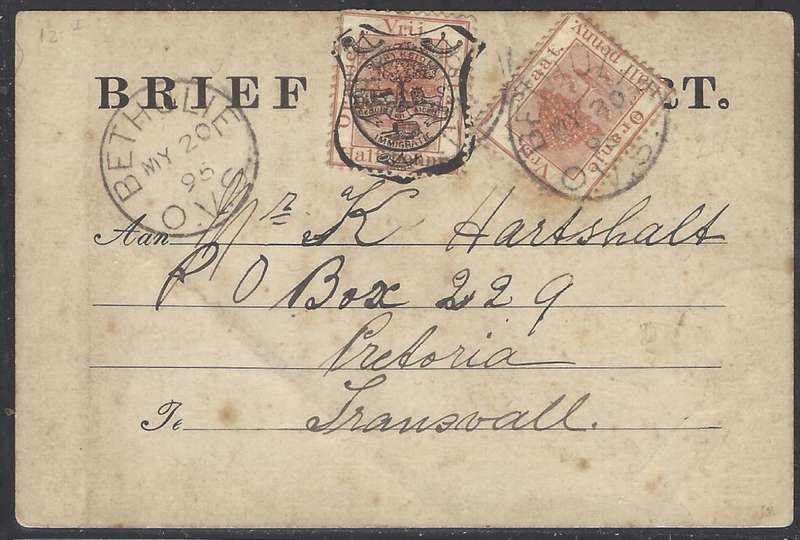 12
BRIEF RT.
Vrij
IMMIGRATIE
Oranje Vrij Staat. Half Penny
BETHULIE
MY 20
95
O.V.S.
BE
MY 20
O.V.S.
Aan Mr K Hartshalt
P O Box 229
Pretoria
Te Transvall.